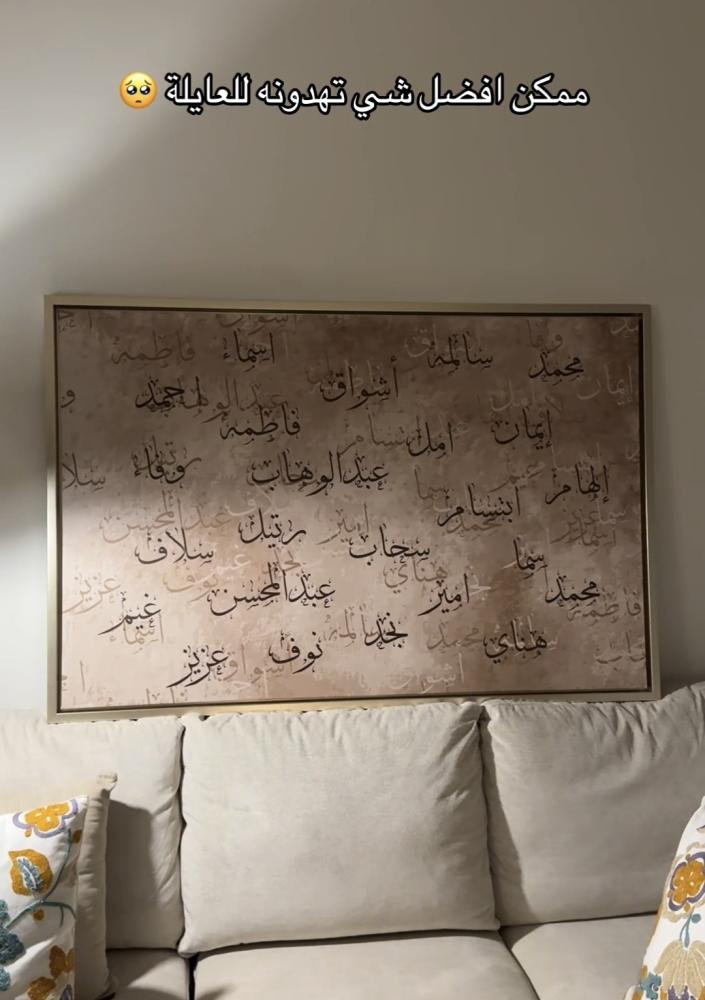 ممكن افضل شي تهدونه للعايلة 🥺
محمد سالمه اسماء
أشواق احمد
إيمان امل فاطمه
إلهام عبدالوهاب وفاء
ابتسام رتيل
سما سحاب سلاف
محمد امير عبدالمحسن غيم
هناي نجد نوف عزيز